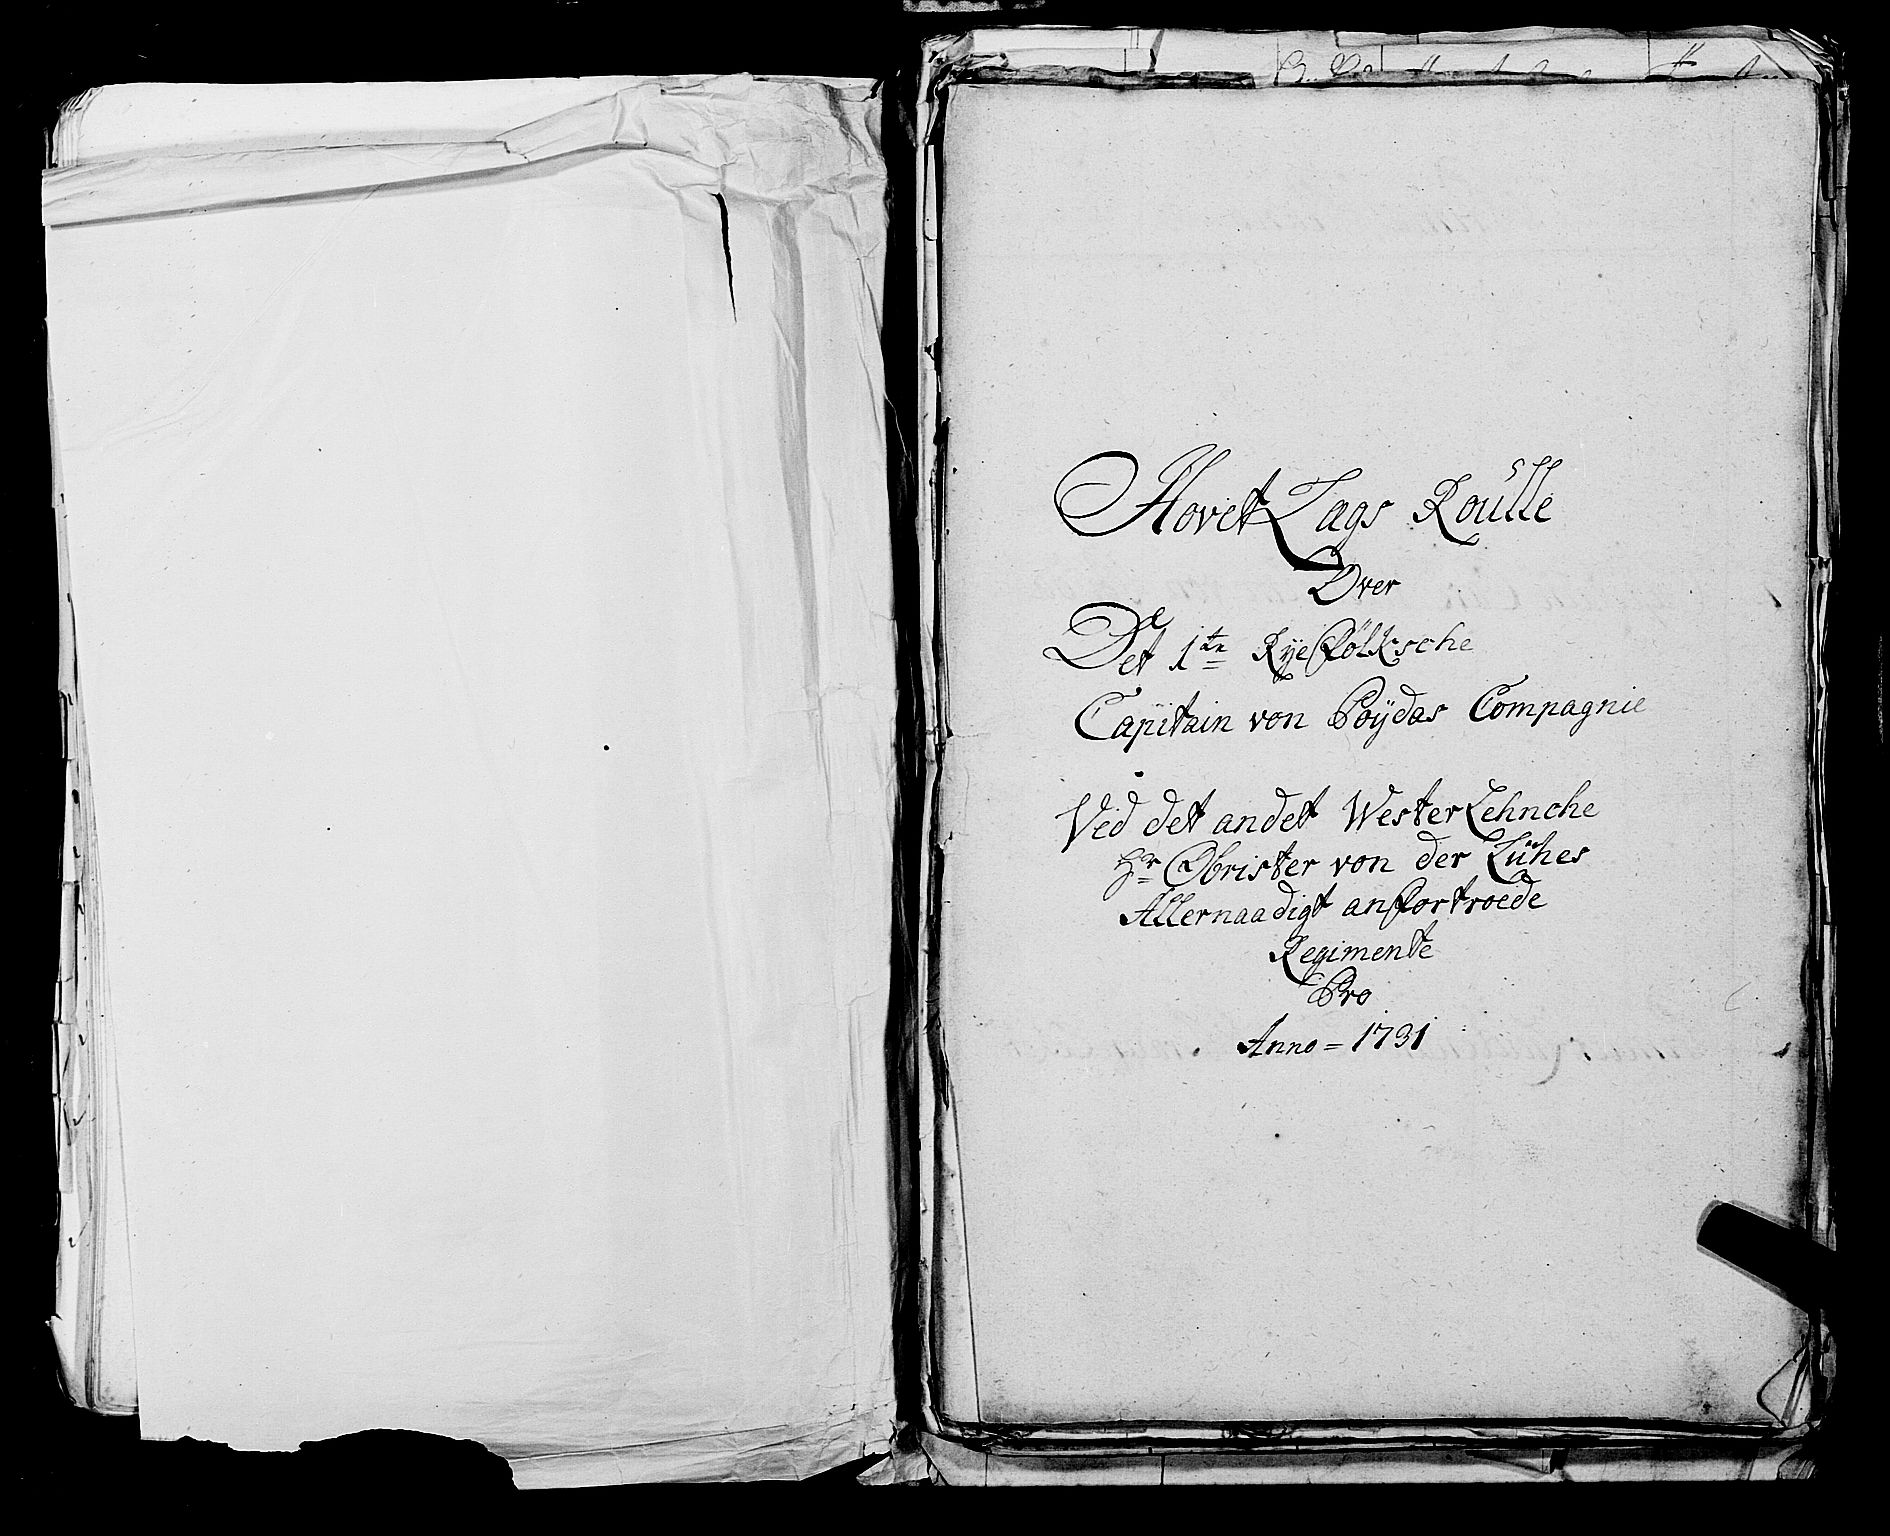 Hovet Lægs Roulle
Over
Det 1te Ryefölksche
Capitain von Pöydas Compagnie
Ved det andet WesterLehnche
Hr Obrister von der Lühes
Allernaadigt anfortroede
Regimente
Pro
Anno = 1731